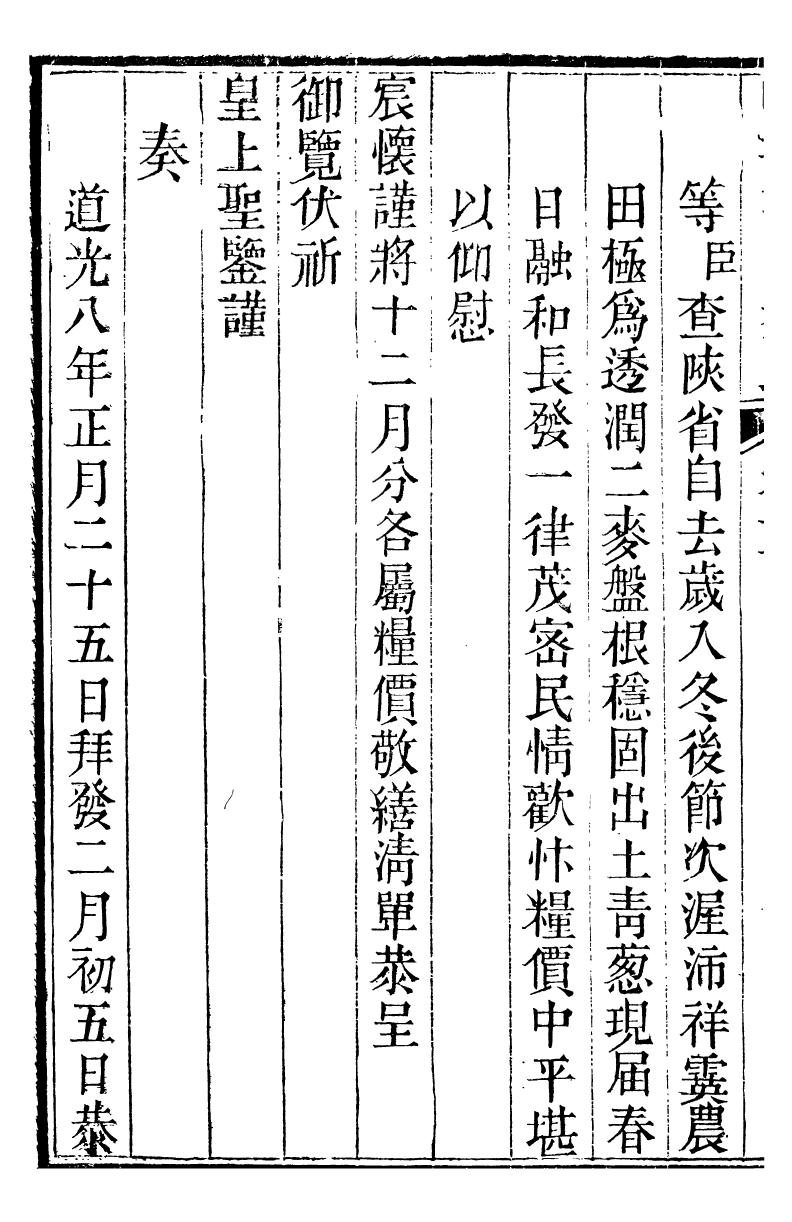 等臣查陜省自去歲入冬後節次渥沛祥霙農
田極爲透潤二麥盤根穩固出土靑葱現届春
日融和長發一律茂密民情歡忭糧價中平堪
以仰慰
宸懷謹將十二月分各屬糧價敬繕清單恭呈
御覽伏祈
皇上聖鑒謹
奏
道光八年正月二十五日拜發二月初五日恭